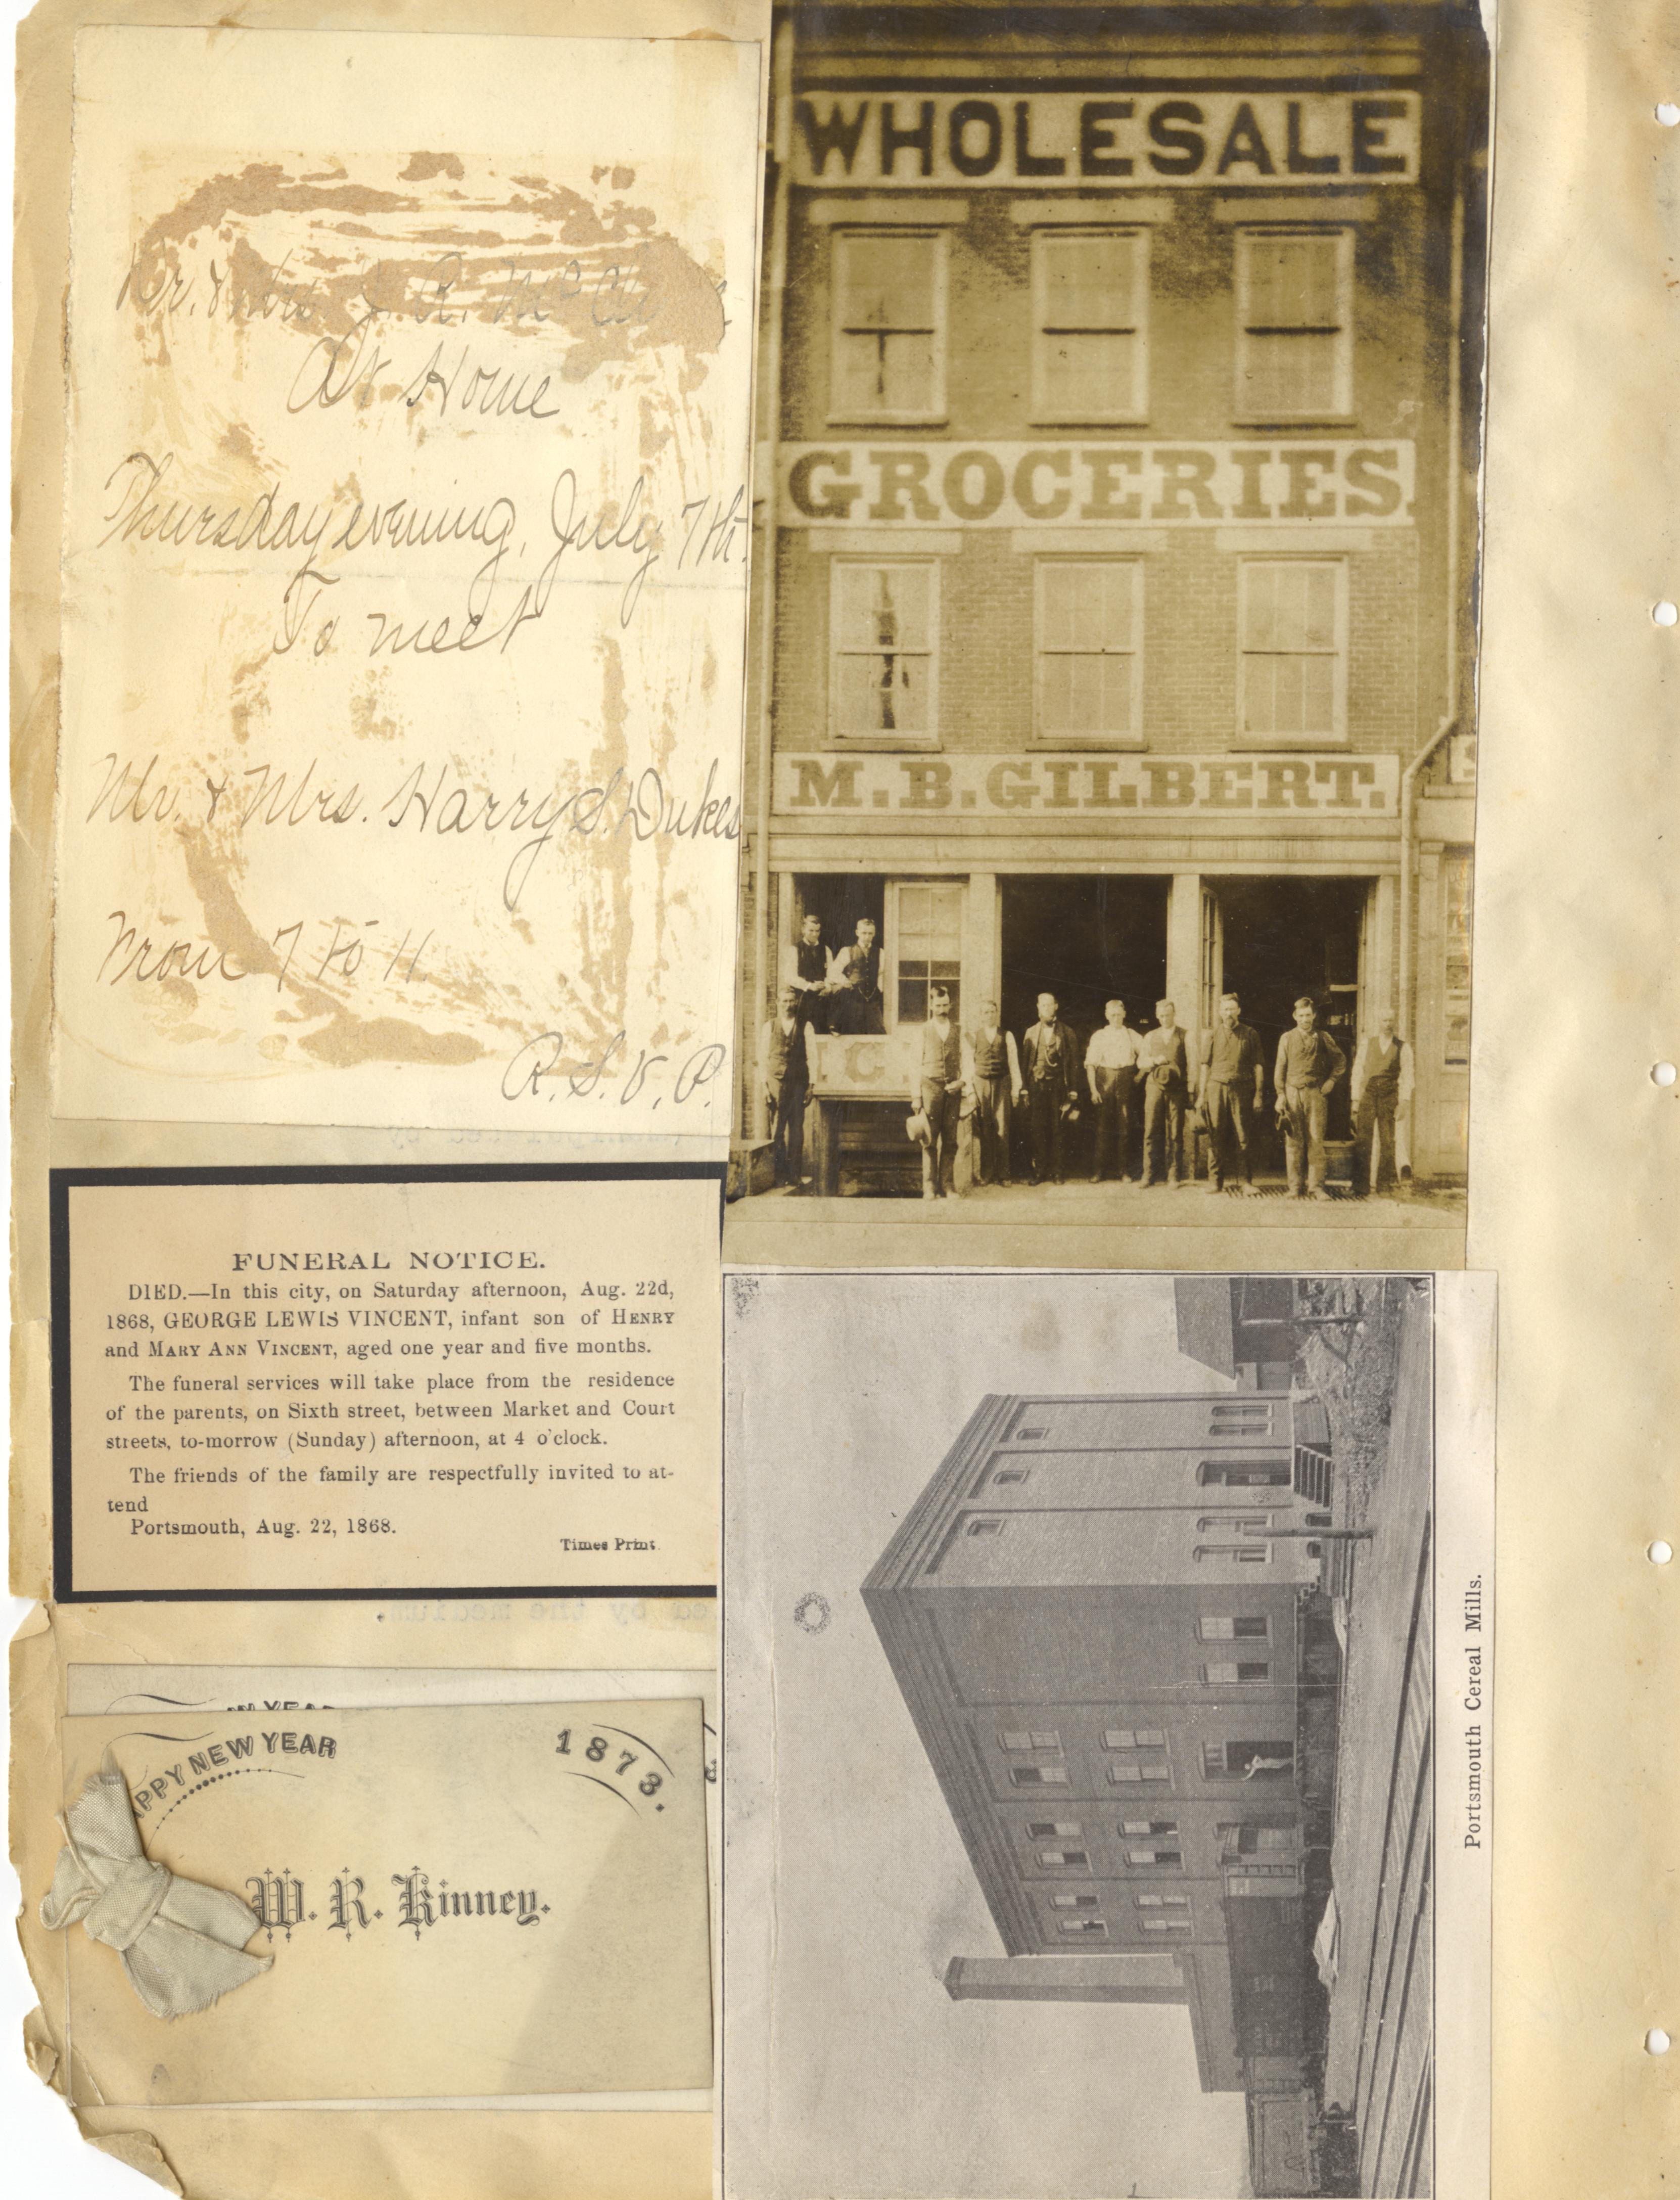 Mr. & Mrs. J. R. McCl
At Home
Thursday evening, July 7th.
To meet
Mr. & Mrs. Harry S. Dukes
From 7 to 11.
R. S. V. P.
WHOLESALE
GROCERIES.
M. B. GILBERT.
C
FUNERAL NOTICE.
DIED.—In this city, on Saturday afternoon, Aug. 22d,
1868, GEORGE LEWIS VINCENT, infant son of HENRY
and MARY ANN VINCENT, aged one year and five months.
The funeral services will take place from the residence
of the parents, on Sixth street, between Market and Court
streets, to-morrow (Sunday) afternoon, at 4 o'clock.
The friends of the family are respectfully invited to at-
tend
Portsmouth, Aug. 22, 1868.
Times Print.
ed by the medium.
W YEAR
APPY NEW YEAR
1873.
W. R. Kinney.
Portsmouth Cereal Mills.